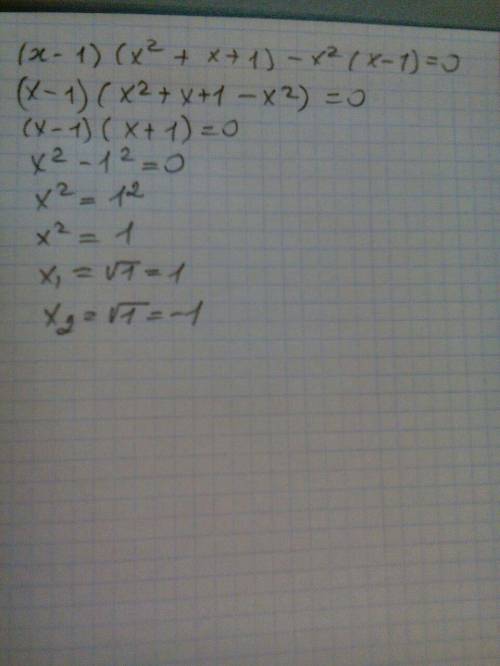 (x - 1) (x² + x + 1) - x² (x - 1) = 0
(x - 1) (x² + x + 1 - x²) = 0
(x - 1) (x + 1) = 0
x² - 1² = 0
x² = 1²
x² = 1
x₁ = √1 = 1
x₂ = √1 = -1